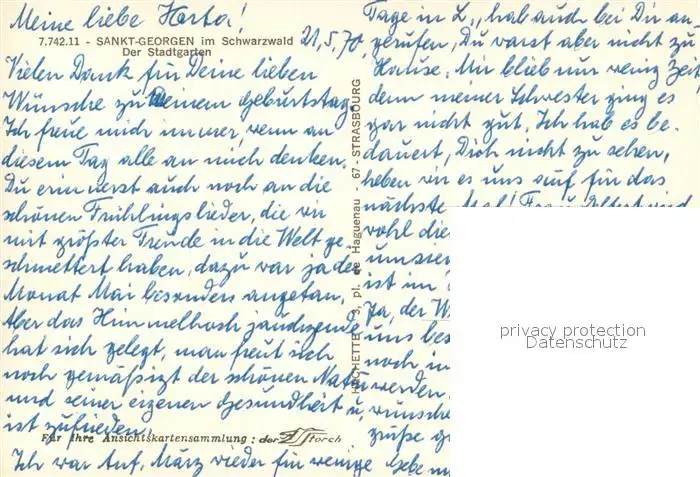 Meine liebe Herta!
7.742.11 - SANKT-GEORGEN im Schwarzwald
Der Stadtgarten
21.5.70
Vielen Dank für Deine lieben
Wünsche zu meinem Geburtstag.
Ich freue mich immer, wenn an
diesem Tag alle an mich denken.
Du erinnerst auch noch an die
schönen Frühlingslieder, die wir
mit größter Freude in die Welt ge-
schmettert haben, dazu war ja der
Monat Mai besonders angetan.
Aber das Himmelhoch jauchzende
hat sich gelegt, man freut sich
noch gemäßigt der schönen Natur
und seiner eigenen Gesundheit u.
ist zufrieden.
Für Ihre Ansichtskartensammlung: der Storch
Ich war Anf. März wieder für wenige
HACHETTE 3, pl. de Haguenau - 67 - STRASBOURG
Tage in L., hab auch bei Dir an-
gerufen, Du warst aber nicht zu
Hause. Mir blieb nur wenig Zeit,
denn meiner Schwester ging es
gar nicht gut. Ich hab es be-
dauert, Dich nicht zu sehen,
heben wir es uns auf für das
nächste Mal! Frau und
wohl die
unser
ist im
Ja, der W
uns bes
noch in
werden
wünsche
grüße
Gebe
privacy protection
Datenschutz